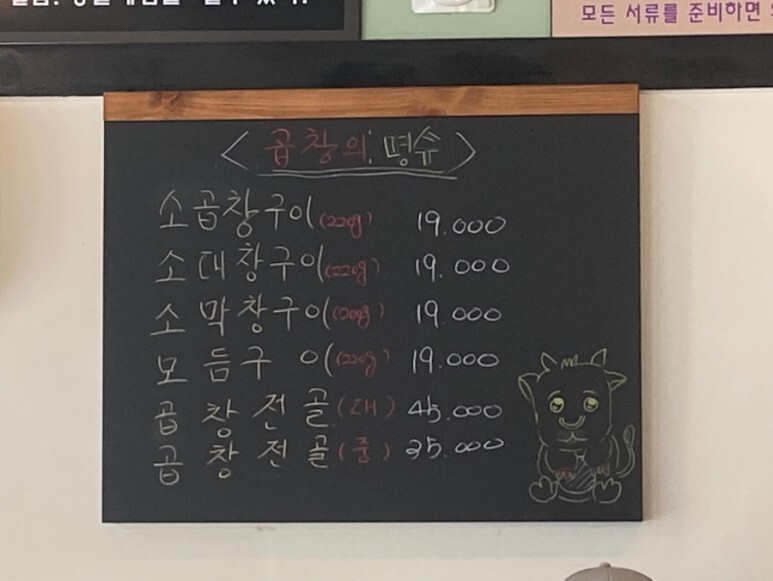 모든 서류를 준비하면
<곱창의 명슈>
소곱창구이(220g) 19.000
소대창구이(220g) 19.000
소막창구이(200g) 19.000
모듬구이(220g) 19.000
곱창전골(대) 45.000
곱창전골(중) 35.000